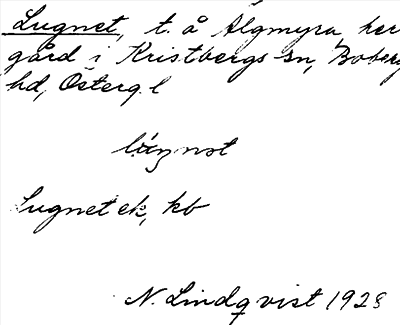 Lugnet, t. å Älgmyra, her
gård i Kristbergs sn, Boberg
hd, Österg. l
Lugnet ek, kb
N. Lindqvist 1928